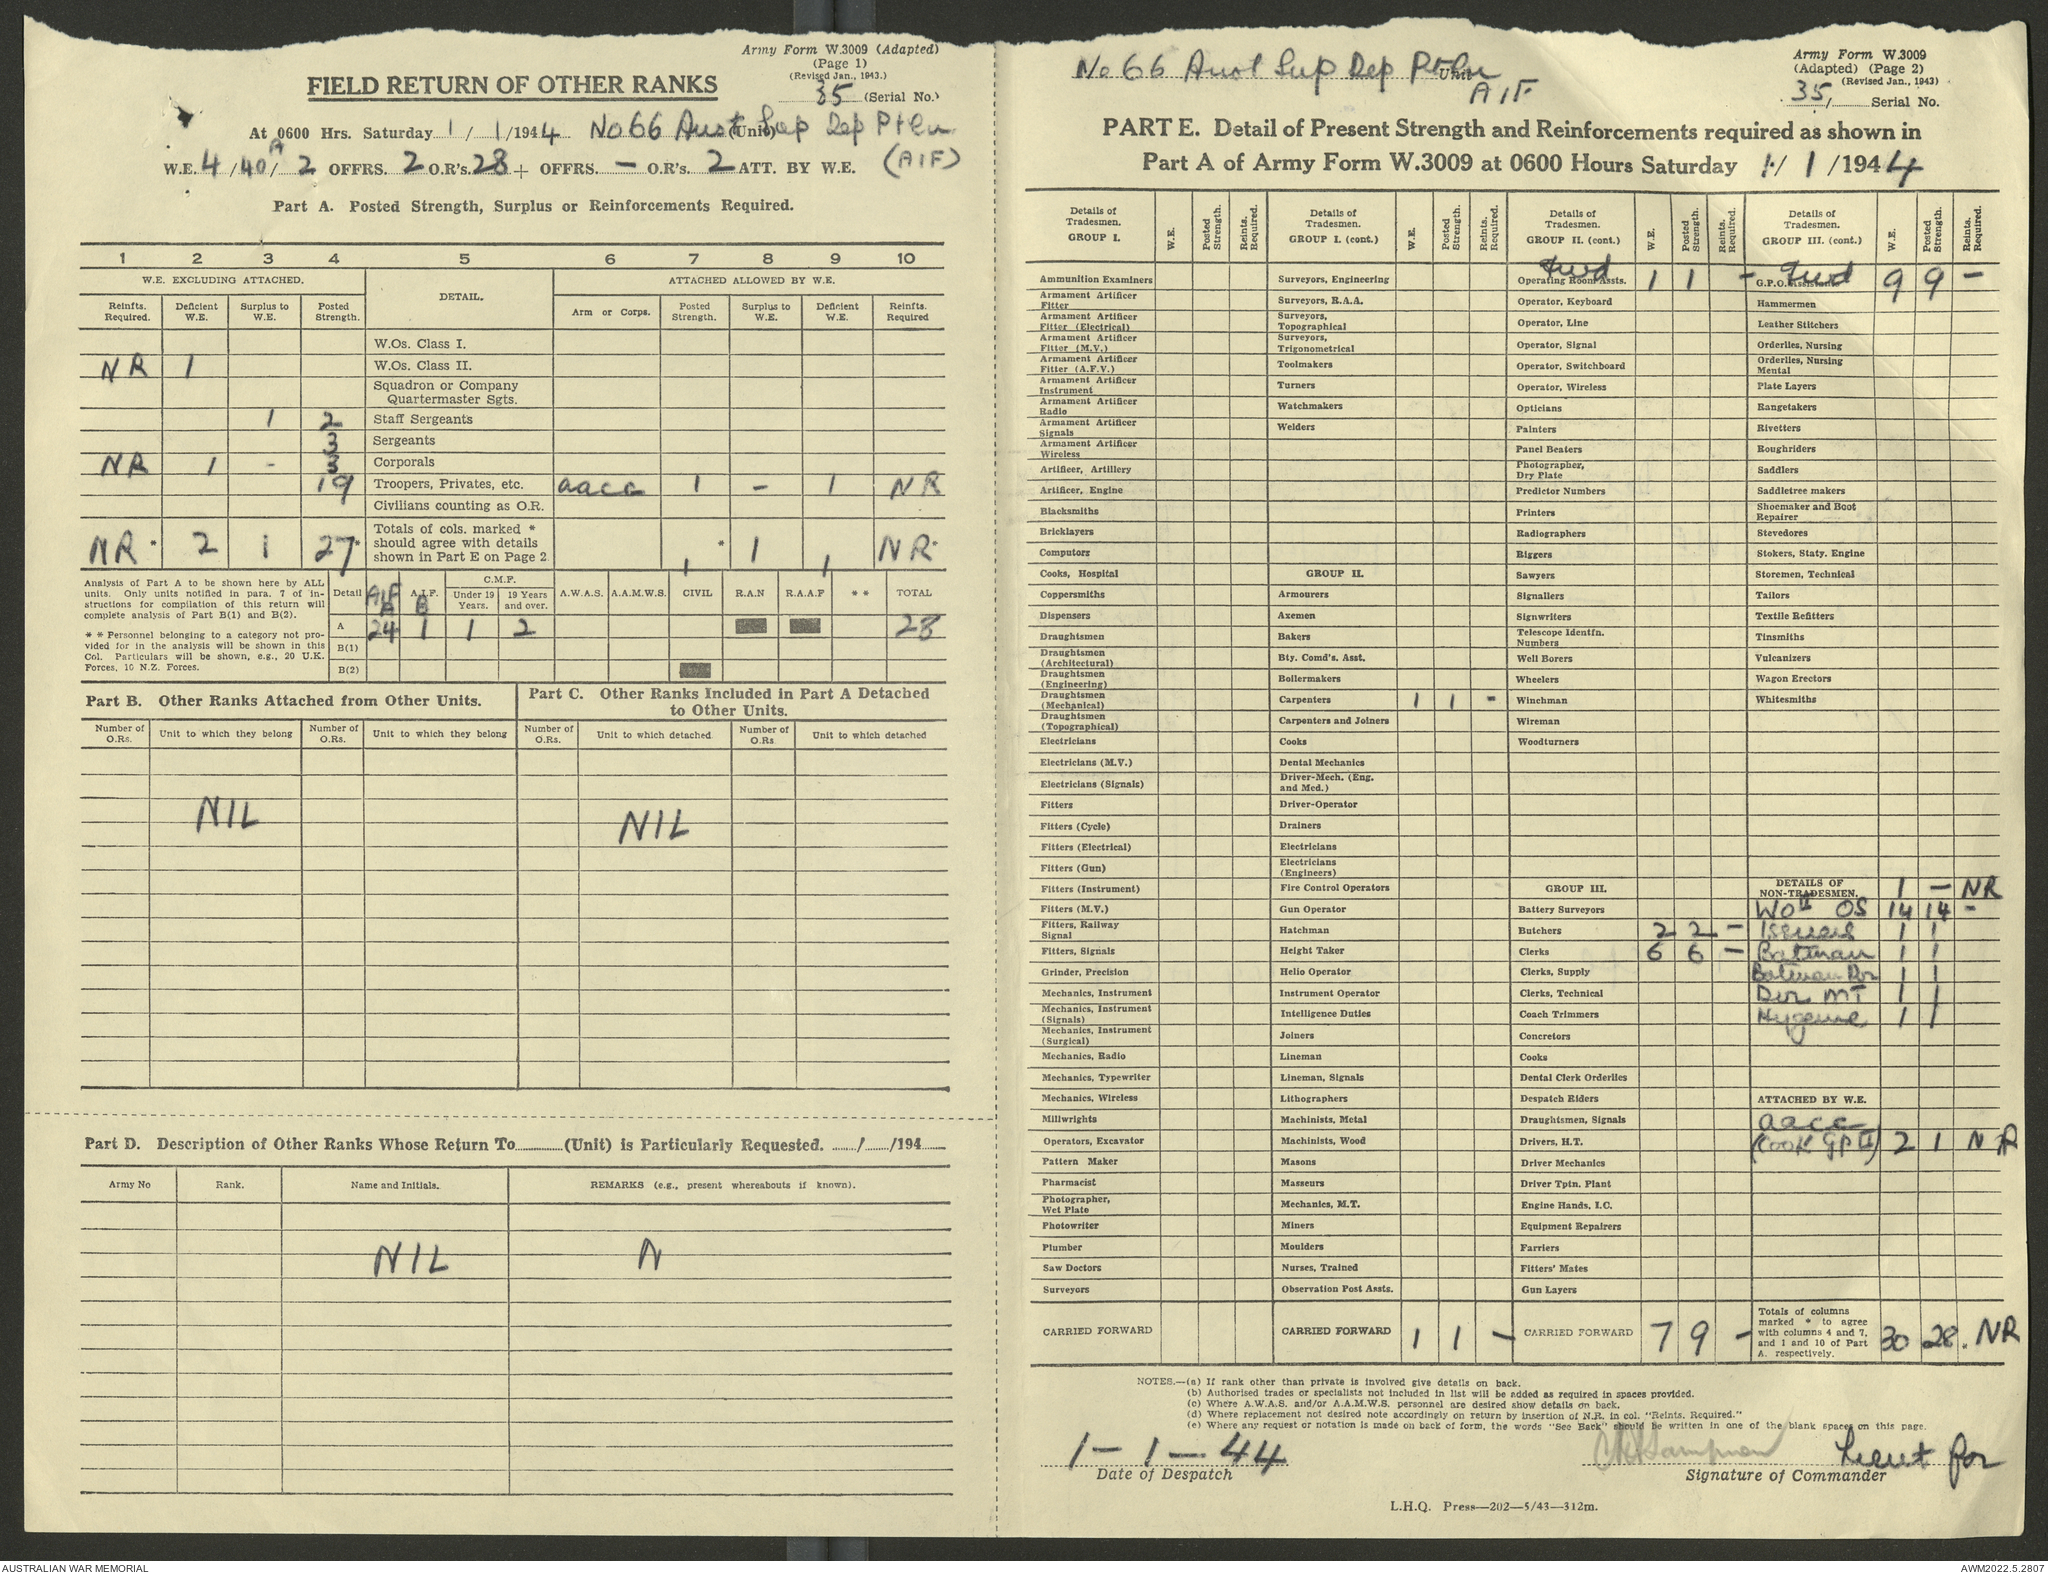 Army Form W.3009 (Adapted)
(Page 1)
(Revised Jan., 1943.)
FIELD RETURN OF OTHER RANKS
35 (Serial No.)
At 0600 Hrs. Saturday 1 / 1 /1944 No 66 Aust Sup Dep Ptln (Unit)
(AIF)
W.E. 4 /40A/ 2 OFFRS. 2 O.R's. 28 + OFFRS. — O.R's. 2 ATT. BY W.E.
Part A. Posted Strength, Surplus or Reinforcements Required.
1 2 3 4 5 6 7 8 9 10
W.E. EXCLUDING ATTACHED. DETAIL. ATTACHED ALLOWED BY W.E.
Reinfts. Required. Deficient W.E. Surplus to W.E. Posted Strength. Arm or Corps. Posted Strength. Surplus to W.E. Deficient W.E. Reinfts. Required
W.Os. Class I.
NR 1 W.Os. Class II.
Squadron or Company
Quartermaster Sgts.
1 2 Staff Sergeants
3 Sergeants
NR 1 - 3 Corporals
19 Troopers, Privates, etc. aacc 1 – 1 NR
Civilians counting as O.R.
Totals of cols. marked *
should agree with details
shown in Part E on Page 2.
NR* 2 1 27* 1 * 1 1 NR*
Analysis of Part A to be shown here by ALL
units. Only units notified in para. 7 of in-
structions for compilation of this return will
complete analysis of Part B(1) and B(2).
* * Personnel belonging to a category not pro-
vided for in the analysis will be shown in this
Col. Particulars will be shown, e.g., 20 U.K.
Forces, 10 N.Z. Forces.
Detail AIF A A.I.F. B C.M.F. Under 19 Years. 19 Years and over. A.W.A.S. A.A.M.W.S. CIVIL R.A.N R.A.A.F * * TOTAL
A 24 1 1 2 28
B(1)
B(2)
Part B. Other Ranks Attached from Other Units.
Part C. Other Ranks Included in Part A Detached
to Other Units.
Number of O.Rs. Unit to which they belong Number of O.Rs. Unit to which they belong Number of O.Rs. Unit to which detached Number of O.Rs Unit to which detached
NIL NIL
Part D. Description of Other Ranks Whose Return To (Unit) is Particularly Requested. / /194
Army No Rank. Name and Initials. REMARKS (e.g., present whereabouts if known).
NIL N
No 66 Aust Sup Dep Ptln Unit
AIF
Army Form W.3009
(Adapted) (Page 2)
(Revised Jan., 1943)
35/ Serial No.
PART E. Detail of Present Strength and Reinforcements required as shown in
Part A of Army Form W.3009 at 0600 Hours Saturday 1/ 1 /1944
Details of Tradesmen. GROUP I. W.E. Posted Strength. Reints. Required.
Ammunition Examiners
Armament Artificer Fitter
Armament Artificer Fitter (Electrical)
Armament Artificer Fitter (M.V.)
Armament Artificer Fitter (A.F.V.)
Armament Artificer Instrument
Armament Artificer Radio
Armament Artificer Signals
Armament Artificer Wireless
Artificer, Artillery
Artificer, Engine
Blacksmiths
Bricklayers
Computors
Cooks, Hospital
Coppersmiths
Dispensers
Draughtsmen
Draughtsmen (Architectural)
Draughtsmen (Engineering)
Draughtsmen (Mechanical)
Draughtsmen (Topographical)
Electricians
Electricians (M.V.)
Electricians (Signals)
Fitters
Fitters (Cycle)
Fitters (Electrical)
Fitters (Gun)
Fitters (Instrument)
Fitters (M.V.)
Fitters, Railway Signal
Fitters, Signals
Grinder, Precision
Mechanics, Instrument
Mechanics, Instrument (Signals)
Mechanics, Instrument (Surgical)
Mechanics, Radio
Mechanics, Typewriter
Mechanics, Wireless
Millwrights
Operators, Excavator
Pattern Maker
Pharmacist
Photographer, Wet Plate
Photowriter
Plumber
Saw Doctors
Surveyors
CARRIED FORWARD
Details of Tradesmen. GROUP I. (cont.) W.E. Posted Strength. Reints. Required.
Surveyors, Engineering
Surveyors, R.A.A.
Surveyors, Topographical
Surveyors, Trigonometrical
Toolmakers
Turners
Watchmakers
Welders
GROUP II.
Armourers
Axemen
Bakers
Bty. Comd's. Asst.
Boilermakers
Carpenters 1 1 -
Carpenters and Joiners
Cooks
Dental Mechanics
Driver-Mech. (Eng. and Med.)
Driver-Operator
Drainers
Electricians
Electricians (Engineers)
Fire Control Operators
Gun Operator
Hatchman
Height Taker
Helio Operator
Instrument Operator
Intelligence Duties
Joiners
Lineman
Lineman, Signals
Lithographers
Machinists, Metal
Machinists, Wood
Masons
Masseurs
Mechanics, M.T.
Miners
Moulders
Nurses, Trained
Observation Post Assts.
CARRIED FORWARD 1 1 –
Details of Tradesmen. GROUP II. (cont.) W.E. Posted Strength. Reints. Required.
fwd
Operating Room Assts. 1 1 –
Operator, Keyboard
Operator, Line
Operator, Signal
Operator, Switchboard
Operator, Wireless
Opticians
Painters
Panel Beaters
Photographer, Dry Plate
Predictor Numbers
Printers
Radiographers
Riggers
Sawyers
Signallers
Signwriters
Telescope Identfn. Numbers
Well Borers
Wheelers
Winchman
Wireman
Woodturners
GROUP III.
Battery Surveyors
Butchers 2 2 –
Clerks 6 6 –
Clerks, Supply
Clerks, Technical
Coach Trimmers
Concretors
Cooks
Dental Clerk Orderlies
Despatch Riders
Draughtsmen, Signals
Drivers, H.T.
Driver Mechanics
Driver Tptn. Plant
Engine Hands, I.C.
Equipment Repairers
Farriers
Fitters' Mates
Gun Layers
CARRIED FORWARD 7 9 –
Details of Tradesmen. GROUP III. (cont.) W.E. Posted Strength. Reints. Required.
fwd
G.P.O. Assistants 9 9 –
Hammermen
Leather Stitchers
Orderlies, Nursing
Orderlies, Nursing Mental
Plate Layers
Rangetakers
Rivetters
Roughriders
Saddlers
Saddletree makers
Shoemaker and Boot Repairer
Stevedores
Stokers, Staty. Engine
Storemen, Technical
Tailors
Textile Refitters
Tinsmiths
Vulcanizers
Wagon Erectors
Whitesmiths
DETAILS OF NON-TRADESMEN. 1 – NR
WO II OS 14 14 -
Issuers 1 1
Batman 1 1
Batman Dvr 1 1
Dvr MT 1 1
Hygeine 1 1
ATTACHED BY W.E.
aacc
(Cook GP II) 2 1 NR
Totals of columns
marked * to agree
with columns 4 and 7,
and 1 and 10 of Part
A. respectively. 30 28. NR
NOTES.—(a) If rank other than private is involved give details on back.
(b) Authorised trades or specialists not included in list will be added as required in spaces provided.
(c) Where A.W.A.S. and/or A.A.M.W.S. personnel are desired show details on back.
(d) Where replacement not desired note accordingly on return by insertion of N.R. in col. "Reints. Required."
(e) Where any request or notation is made on back of form, the words "See Back" should be written in one of the blank spaces on this page.
1 – 1 – 44
Date of Despatch
Lieut for
Signature of Commander
L.H.Q. Press—202—5/43—312m.
AUSTRALIAN WAR MEMORIAL
AWM2022.5.2807